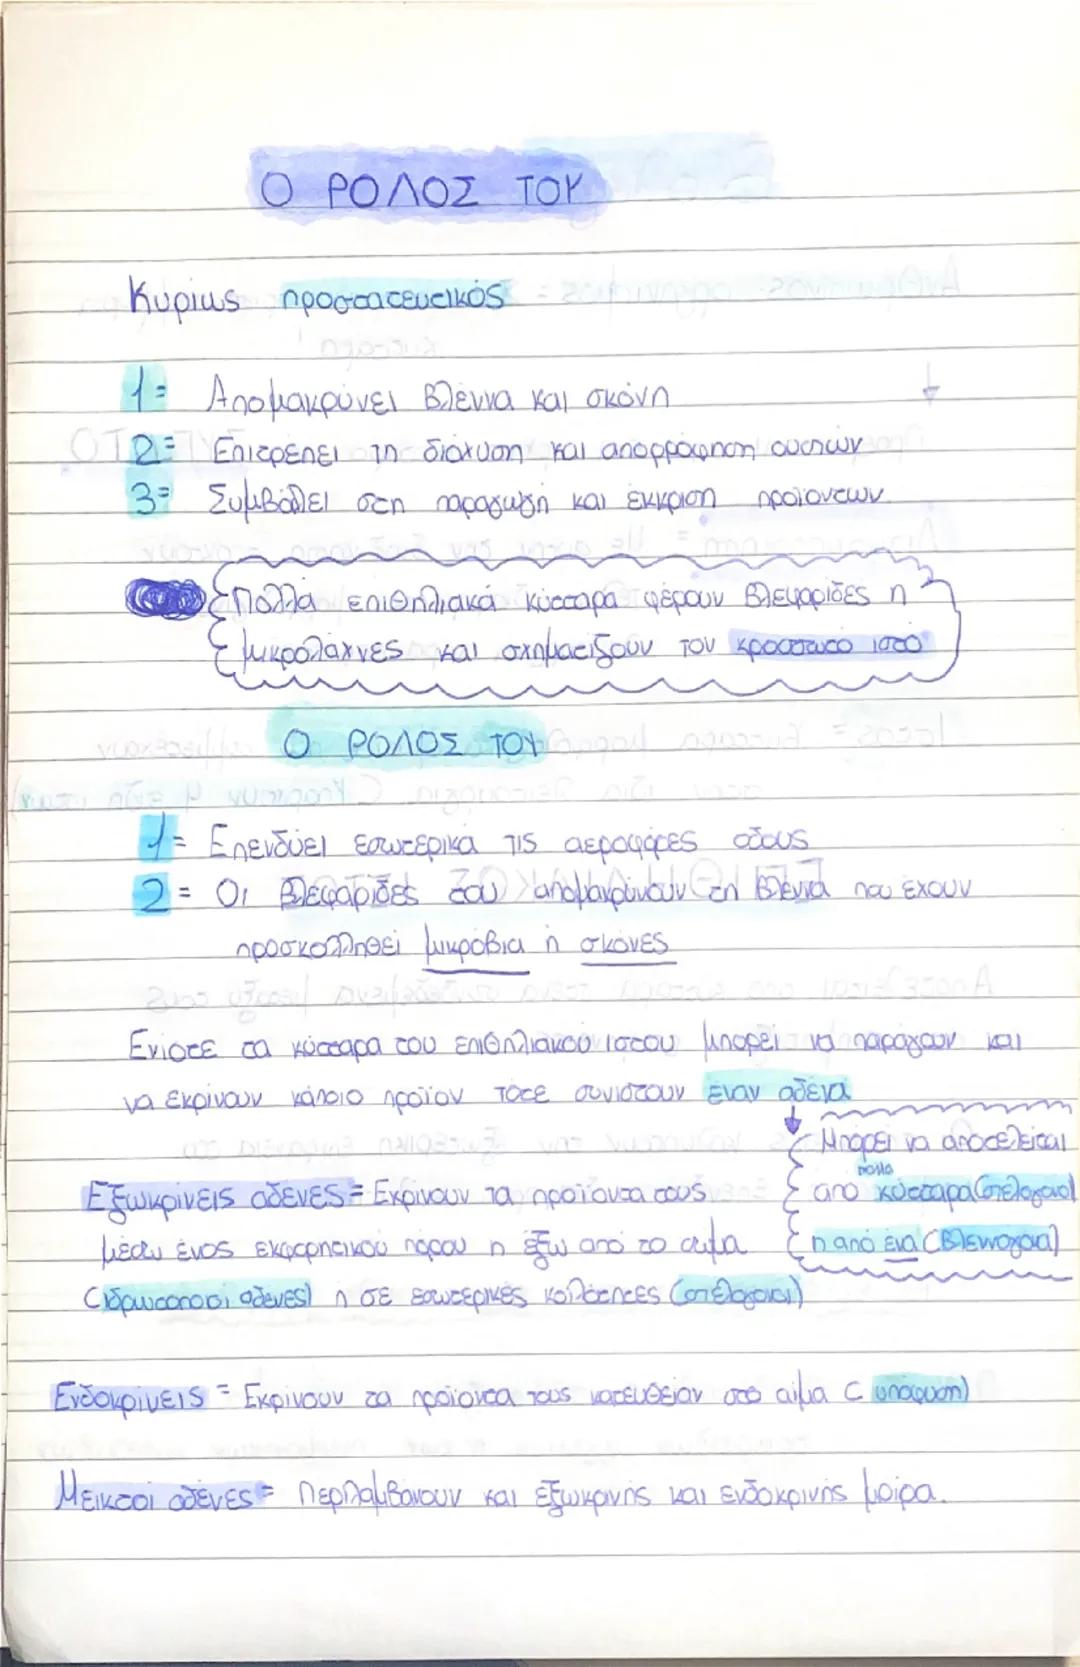 Ο ΡΟΛΟΣ ΤΟΥ
Κυρίως προστατευτικός
1= Απομακρύνει βλέννα και σκόνη
2= Επιτρέπει τη διάχυση και απορρόφηση ουσιών
3= Συμβάλλει στη παραγωγή και έκκριση προϊόντων.
Πολλά επιθηλιακά κύτταρα φέρουν βλεφαρίδες ή
μικρολάχνες και σχηματίζουν τον κροσσωτό ιστό
Ο ΡΟΛΟΣ ΤΟΥ
1= Επενδύει εσωτερικά τις αεροφόρες οδους
2= Οι βλεφαρίδες του απομακρύνουν τη βλέννα που έχουν
προσκολληθεί μικρόβια ή σκόνες
Ενίοτε τα κύτταρα του επιθηλιακού ιστου μπορεί να παράγουν και
να εκρίνουν κάποιο προϊον τότε συνιστουν έναν αδένα
Μπορεί να αποτελείται
πολλα
από κύτταρα (σιελογόνοι)
ή από ένα (Βλεννογόνα)
Εξωκρινείς αδένες = Εκρίνουν τα προϊοντα τους
μέσω ένος εκφορητικού πόρου ή έξω από το σωμα
(ιδρωτοποιοί αδένες) ή σε εσωτερικές κοιλότητες (σιελογόνοι)
Ενδοκρίνεις = Εκρίνουν τα προϊοντα τους κατευθείαν στο αιμα ( υπόφυση)
Μεικτοί αδένες = Περιλαμβάνουν και εξωκρινής και ενδοκρινής μοίρα.